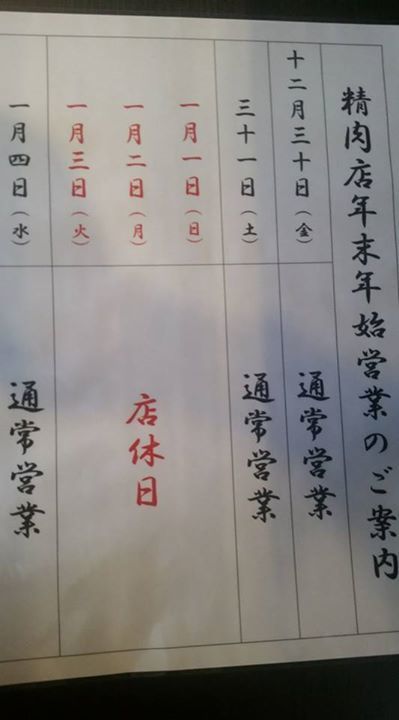 精肉店年末年始営業のご案内
十二月三十日（金）
通常営業
三十一日（土）
通常営業
一月一日（日）
一月二日（月）
一月三日（火）
店休日
一月四日（水）
通常営業